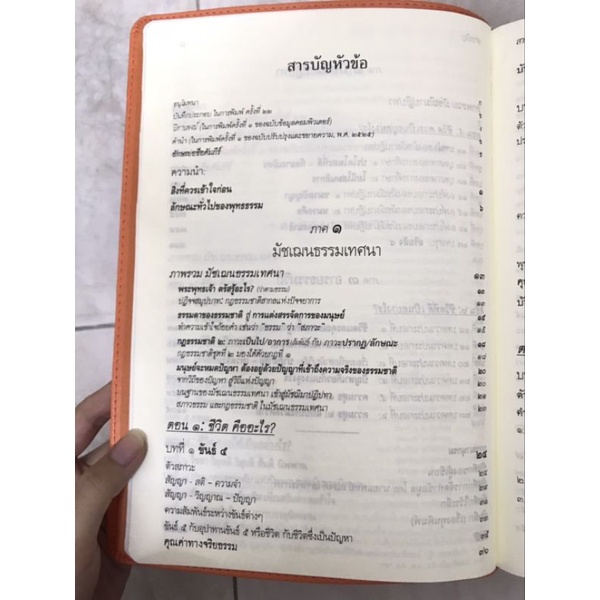 สารบัญหัวข้อ
อนุโมทนา
บันทึกประกอบ ในการพิมพ์ ครั้งที่ ๒๒
นิทานพจน์ (ในการพิมพ์ครั้งที่ ๑ ของฉบับข้อมูลคอมพิวเตอร์)
คำนำ (ในการพิมพ์ครั้งที่ ๑ ของฉบับปรับปรุงและขยายความ, พ.ศ. ๒๕๒๕)
อักษรย่อชื่อคัมภีร์
ความนำ:
สิ่งที่ควรเข้าใจก่อน ๑
ลักษณะทั่วไปของพุทธธรรม ๖
ภาค ๑
มัชเฌนธรรมเทศนา
ภาพรวม มัชเฌนธรรมเทศนา ๑๓
พระพุทธเจ้า ตรัสรู้อะไร? (นำความธรรม) ๑๓
ปฏิจจสมุปบาท: กฎธรรมชาติสากลแห่งปัจจยาการ
ธรรมดาของธรรมชาติ สู่ การแต่งสรรจัดการของมนุษย์ ๑๕
ทำความเข้าใจถ้อยคำ เช่นว่า "ธรรม" ว่า "สภาวะ"
กฎธรรมชาติ ๒: ภาวะเป็นไป/อาการที่สัมพันธ์ กับ ภาวะปรากฏ/ลักษณะ
กฎธรรมชาติชุดที่ ๒ มองได้ด้วยกฎที่ ๑
มนุษย์จะหมดปัญหา ต้องอยู่ด้วยปัญญาที่เข้าถึงความจริงของธรรมชาติ ๒๐
จากวิถีของปัญหา สู่วิถีแห่งปัญญา
บนฐานของมัชเฌนธรรมเทศนา เข้าสู่มัชฌิมาปฏิปทา
สภาวธรรม และกฎธรรมชาติ ในมัชเฌนธรรมเทศนา
ตอน ๑: ชีวิต คืออะไร?
บทที่ ๑ ขันธ์ ๕
ตัวสภาวะ
สัญญา - สติ - ความจำ
สัญญา - วิญญาณ - ปัญญา
ความสัมพันธ์ระหว่างขันธ์ต่างๆ
ขันธ์ ๕ กับอุปาทานขันธ์ ๕ หรือชีวิต กับชีวิตซึ่งเป็นปัญหา
คุณค่าทางจริยธรรม